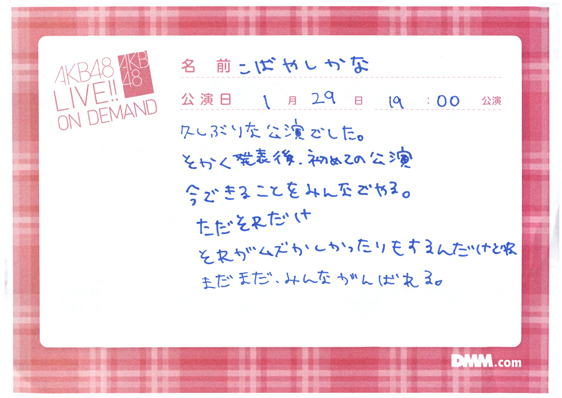 AKB48
LIVE!!
ON DEMAND
AKB
48
名前 こばやしかな
公演日 1月29日 19:00 公演
久しぶりな公演でした。
そかく発表後、初めての公演
今できることをみんなでやる。
ただそれだけ
それがムズかしかったりもするんだけどね
まだまだ、みんながんばれる。
DMM.com